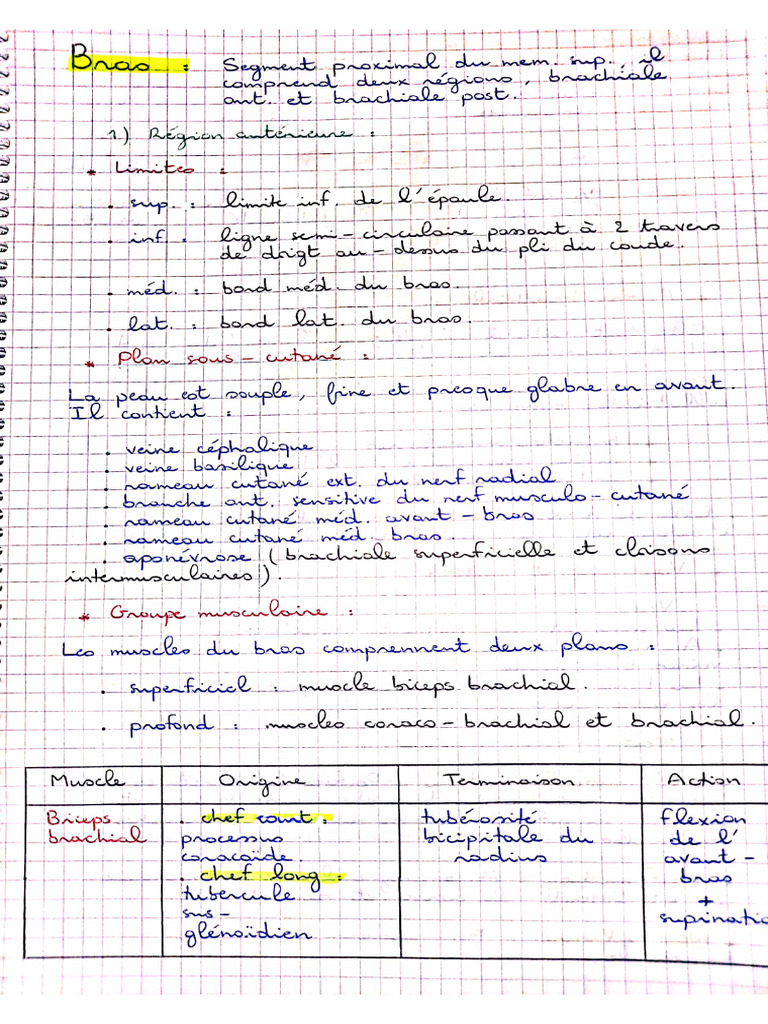 Bras : Segment proximal du mem. sup., il
comprend deux régions, brachiale
ant. et brachiale post.
1.) Région antérieure :
* Limites :
. sup. : limite inf. de l'épaule.
. inf : ligne semi-circulaire passant à 2 travers
de doigt au-dessus du pli du coude.
. méd. : bord méd. du bras.
. lat. : bord lat. du bras.
* Plan sous-cutané :
La peau est souple, fine et presque glabre en avant.
Il contient :
. veine céphalique
. veine basilique
. rameau cutané ext. du nerf radial
. branche ant. sensitive du nerf musculo-cutané
. rameau cutané méd. avant-bras
. rameau cutané méd. bras.
. aponévrose (brachiale superficielle et cloisons
intermusculaires).
* Groupe musculaire :
Les muscles du bras comprennent deux plans :
. superficiel : muscle biceps brachial.
. profond : muscles coraco-brachial et brachial.
Muscle Origine Terminaison Action
Biceps
brachial
. chef court :
processus
coracoïde.
. chef long :
tubercule
sus-
glénoïdien
tubérosité
bicipitale du
radius
flexion
de l'
avant-
bras
+
supinatio